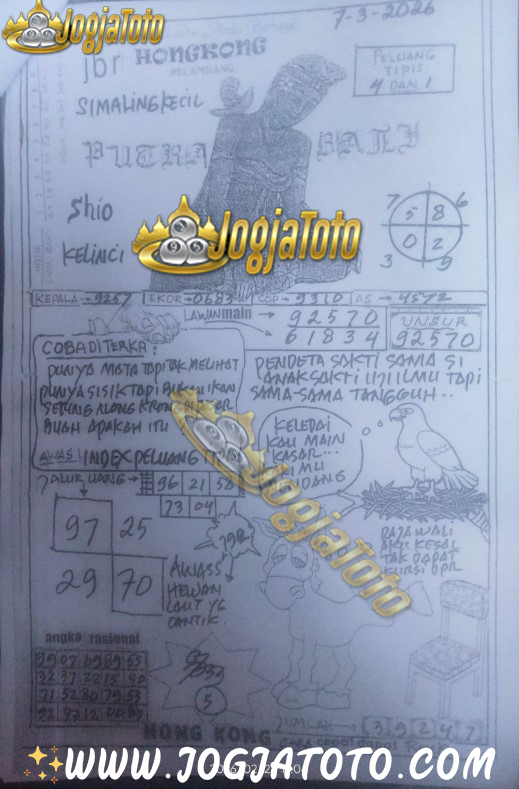 JogjaToto
7-3-2026
jbr HONGKONG
PELAMBANG
PELUANG
TIPIS
4 DAN 1
SIMALINGKECIL
PUTRA BALI
Shio
KELINCI
7 6
5 8
0 2
3 9
JogjaToto
KEPALA → 9257 EKOR → 0683 COP → 9310 AS → 4572
LAWAN main → 92570
→ 61834
UNSUR
92570
COBA DI TERKA:
PUNYA MATA TAPI TAK MELIHAT
PUNYA SISIK TAPI BUKAN IKAN
BUAH APAKAH ITU
AWAS! INDEX PELUANG
PENDETA SAKTI SAMA SI
ANAK SAKTI UJI ILMU TAPI
SAMA-SAMA TANGGUH..
KELEDAI
KAU MAIN
KASAR...
JALUR UANG → 96 21 58
73 04
97 25
29 70
792
AWASS
HEWAN
LAUT YG
CANTIK.
JogjaToto
RAJAWALI
AKU KESAL
TAK DAPAT
KURSI DPR
angka rasional
99 07 69 89 55
32 37 22 15 40
71 52 80 79 53
5
JUMLAH → 3 9 2 4 7
HONG KONG
WWW.JOGJATOTO.COM